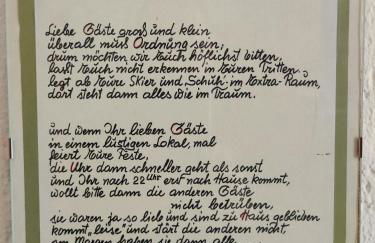 Liebe Gäste groß und klein
überall muss Ordnung sein;
drum möchten wir Euch höflichst bitten,
lasst Euch nicht erkennen in Euren Tritten.
Legt ab Eure Skier und „Schüh" im Extra-Raum,
dort steht dann alles wie im Traum.
und wenn Ihr lieben Gäste
in einem lustigen Lokal, mal
feiert Eure Feste,
die Uhr dann schneller geht als sonst
und Ihr nach 22 Uhr erst nach Hause kommt,
wollt bitte dann die anderen Gäste
nicht betrüben,
sie waren ja so lieb und sind zu Haus geblieben
kommt „leise" und stört die anderen nicht
am Morgen haben sie dann alle